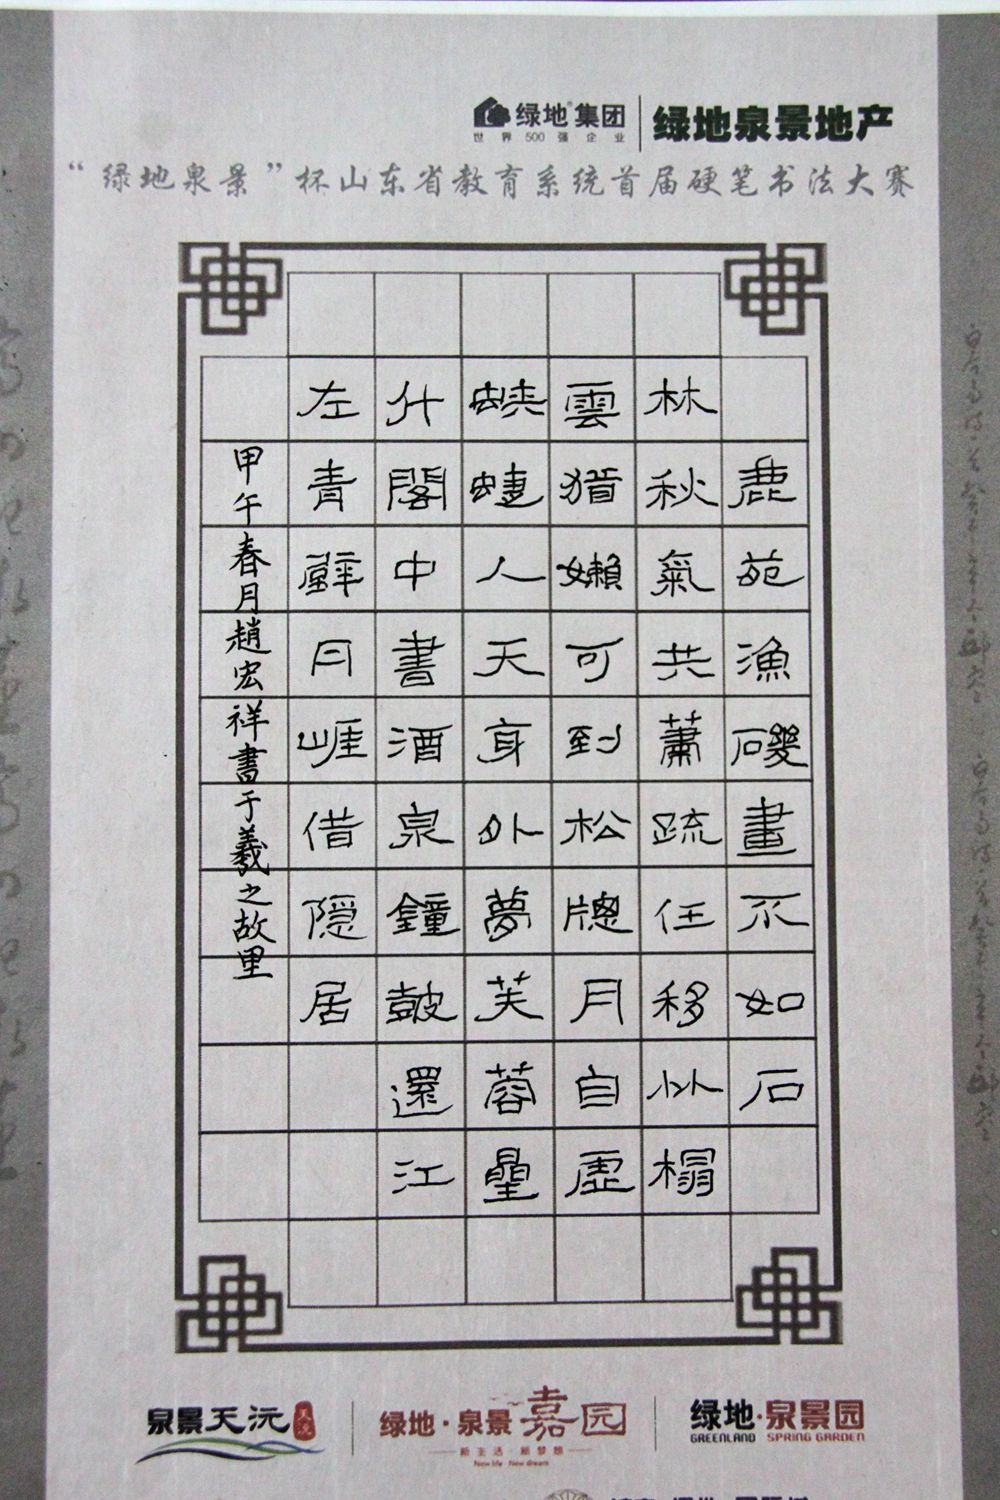 绿地集团
世界500强企业
绿地泉景地产
“绿地泉景”杯山东省教育系统首届硬笔书法大赛
鹿苑漁磯畫不如石
林秋氣共蕭疏任移床榻
雲猶嬾可到松牕月自虛
蛺蜨人天身外夢芙蓉罍
什閣中書酒泉鐘鼓還江
左青鮮月崖借隱居
甲午春月趙宏祥書于羲之故里
泉景天沅
绿地·泉景嘉园
新生活·新梦想
New life New dream
绿地·泉景园
GREENLAND SPRING GARDEN